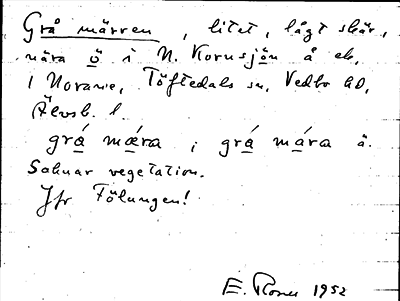 Grå märren, litet, lågt skär,
nära ö i N. Kornsjön å ek.
i Norane, Töftedals sn, Vedbo hd,
Älvsb. l.
grá mǽra ; grá mára ä.
Saknar vegetation.
Jfr Fölungen!
E. 1952